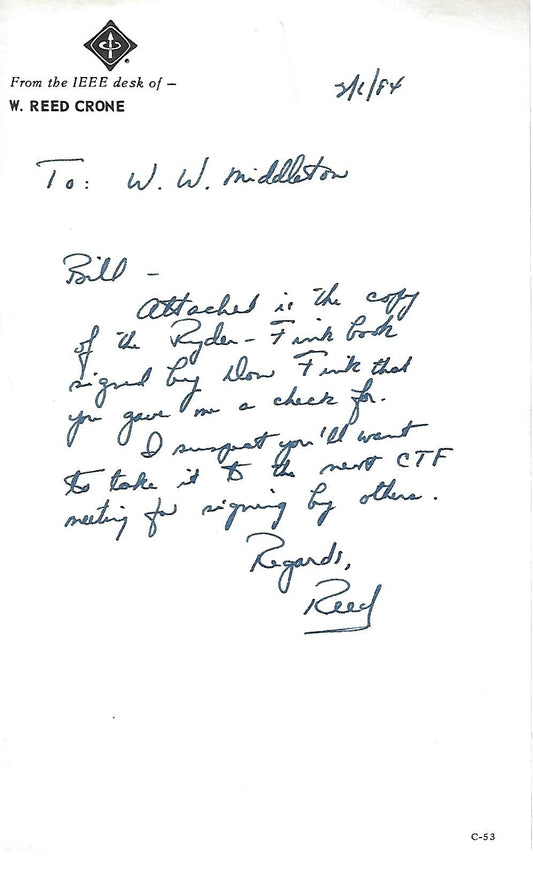 From the IEEE desk of —
W. REED CRONE
3/1/84
To: W. W. Middleton
Bill -
Attached is the copy
of the Ryder - Fink book
signed by Don Fink that
you gave me a check for.
I suspect you'll want
to take it to the next CTF
meeting for signing by others.
Regards,
Reed
C-53